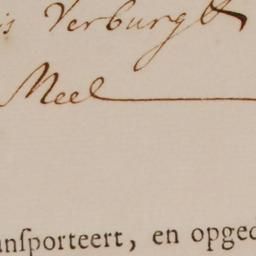 is Verburgh
Meel
anſporteert, en opged